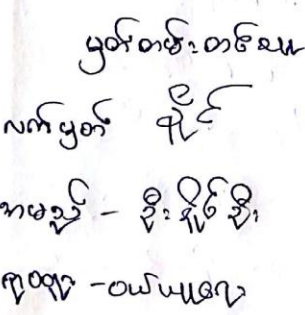 မှတ်တမ်းတင်သူ
လက်မှတ်
အမည် - ဦးခိုင်ဦး
ရာထူး - ဝယ်ယူရေး